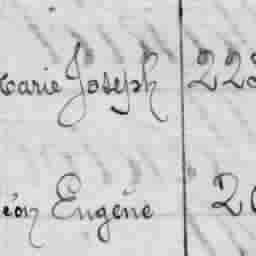 Marie Joseph 223
Léon Eugène 20